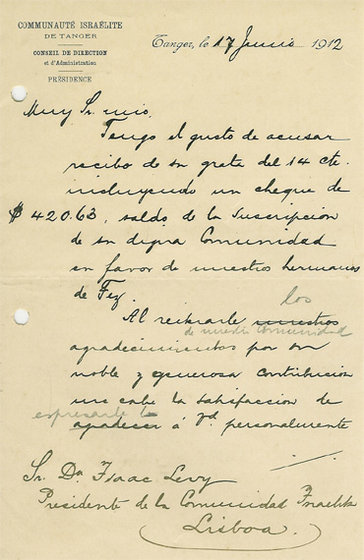 COMMUNAUTÉ ISRAÉLITE
DE TANGER
CONSEIL DE DIRECTION
et d'Administration
PRÉSIDENCE
Tanger, le 17 Junio 1912
Muy Sr. mio.
Tengo el gusto de acusar
recibo de su grata del 14 cte.
incluyendo un cheque de
$ 420.63, saldo de la suscripcion
de su digna Comunidad
en favor de nuestros hermanos
de Fez.
los
Al reiterarle nuestros
de nuestra comunidad
agradecimientos por su
noble y generosa contribucion
me cabe la satisfaccion de
expresarle
agradecer á Vd. personalmente
Sr. Dn. Isaac Levy
Presidente de la Comunidad Israelita
Lisboa.